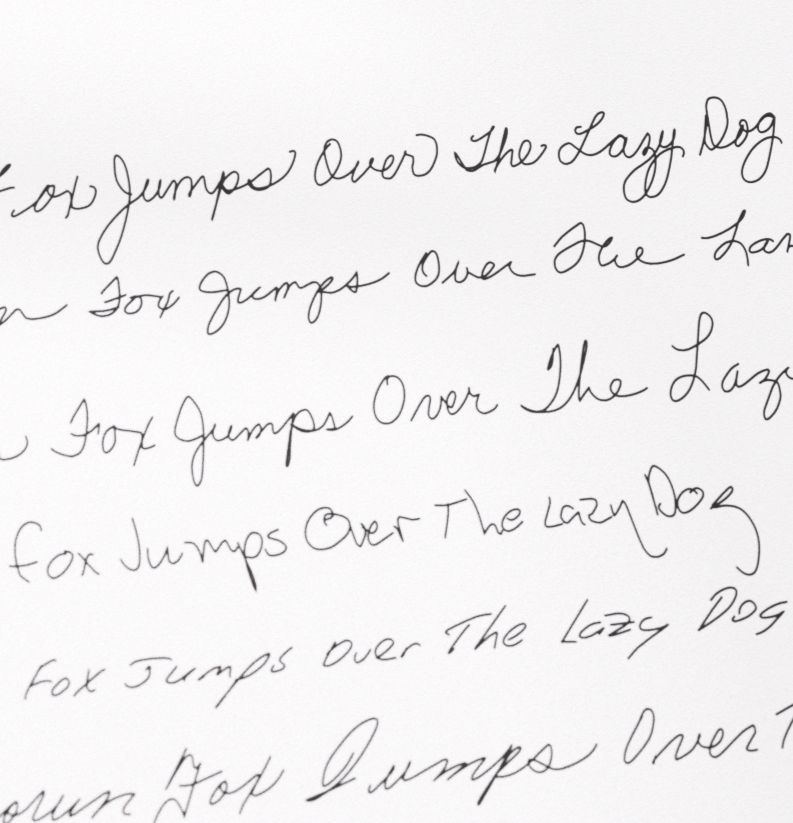 Fox Jumps Over The Lazy Dog
Fox Jumps Over The
Fox Jumps Over The Lazy
Fox Jumps Over The Lazy Dog
Fox Jumps Over The Lazy Dog
Fox Jumps Over